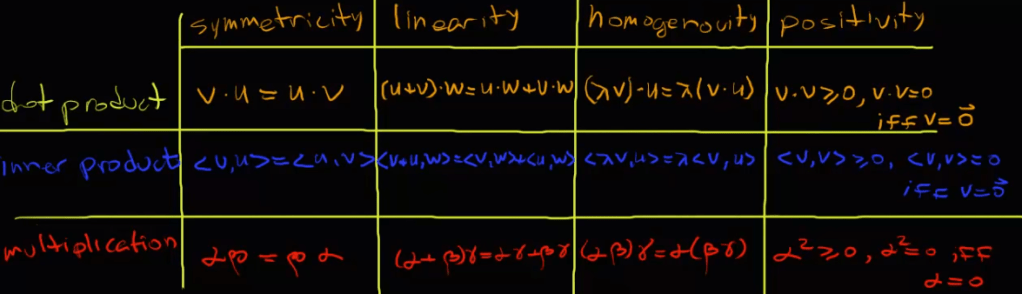 symmetricity linearity homogenouity positivity
dot product v·u=u·v (u+v)·w=u·w+v·w (λv)·u=λ(v·u) v·v≥0, v·v=0
iff v=0⃗
inner product <v,u>=<u,v> <v+u,w>=<v,w>+<u,w> <λv,u>=λ<v,u> <v,v>≥0, <v,v>=0
iff v=0⃗
multiplication αβ=βα (α+β)γ=αγ+βγ (αβ)γ=α(βγ) α²≥0, α²=0 iff
α=0